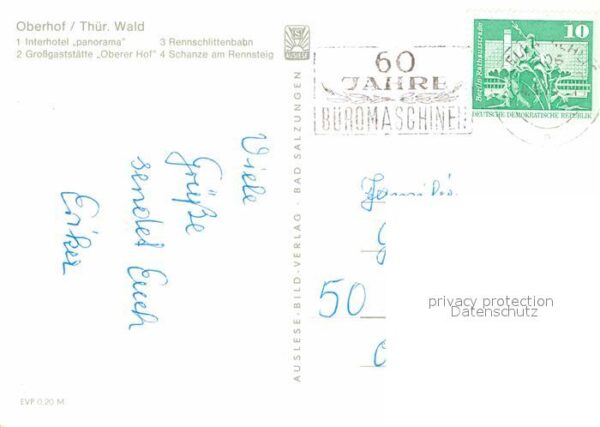 Oberhof / Thür. Wald
1 Interhotel „panorama" 3 Rennschlittenbahn
2 Großgaststätte „Oberer Hof" 4 Schanze am Rennsteig
60
JAHRE
BÜROMASCHINEN
10
Berlin, Rathausstraße
DEUTSCHE DEMOKRATISCHE REPUBLIK
Viele
Grüße
sendet Euch
AUSLESE-BILD-VERLAG · BAD SALZUNGEN
Familie
50
privacy protection
Datenschutz
EVP 0,20 M